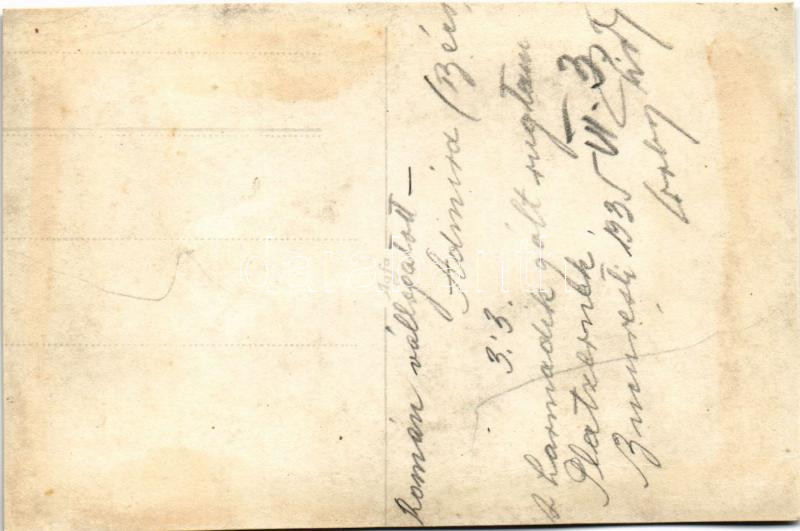 Román válogatott –
Admira (Bécs)
3:3.
A harmadik gólt rugtam
Platzernek.
Bucuresti 1935 VI. 3